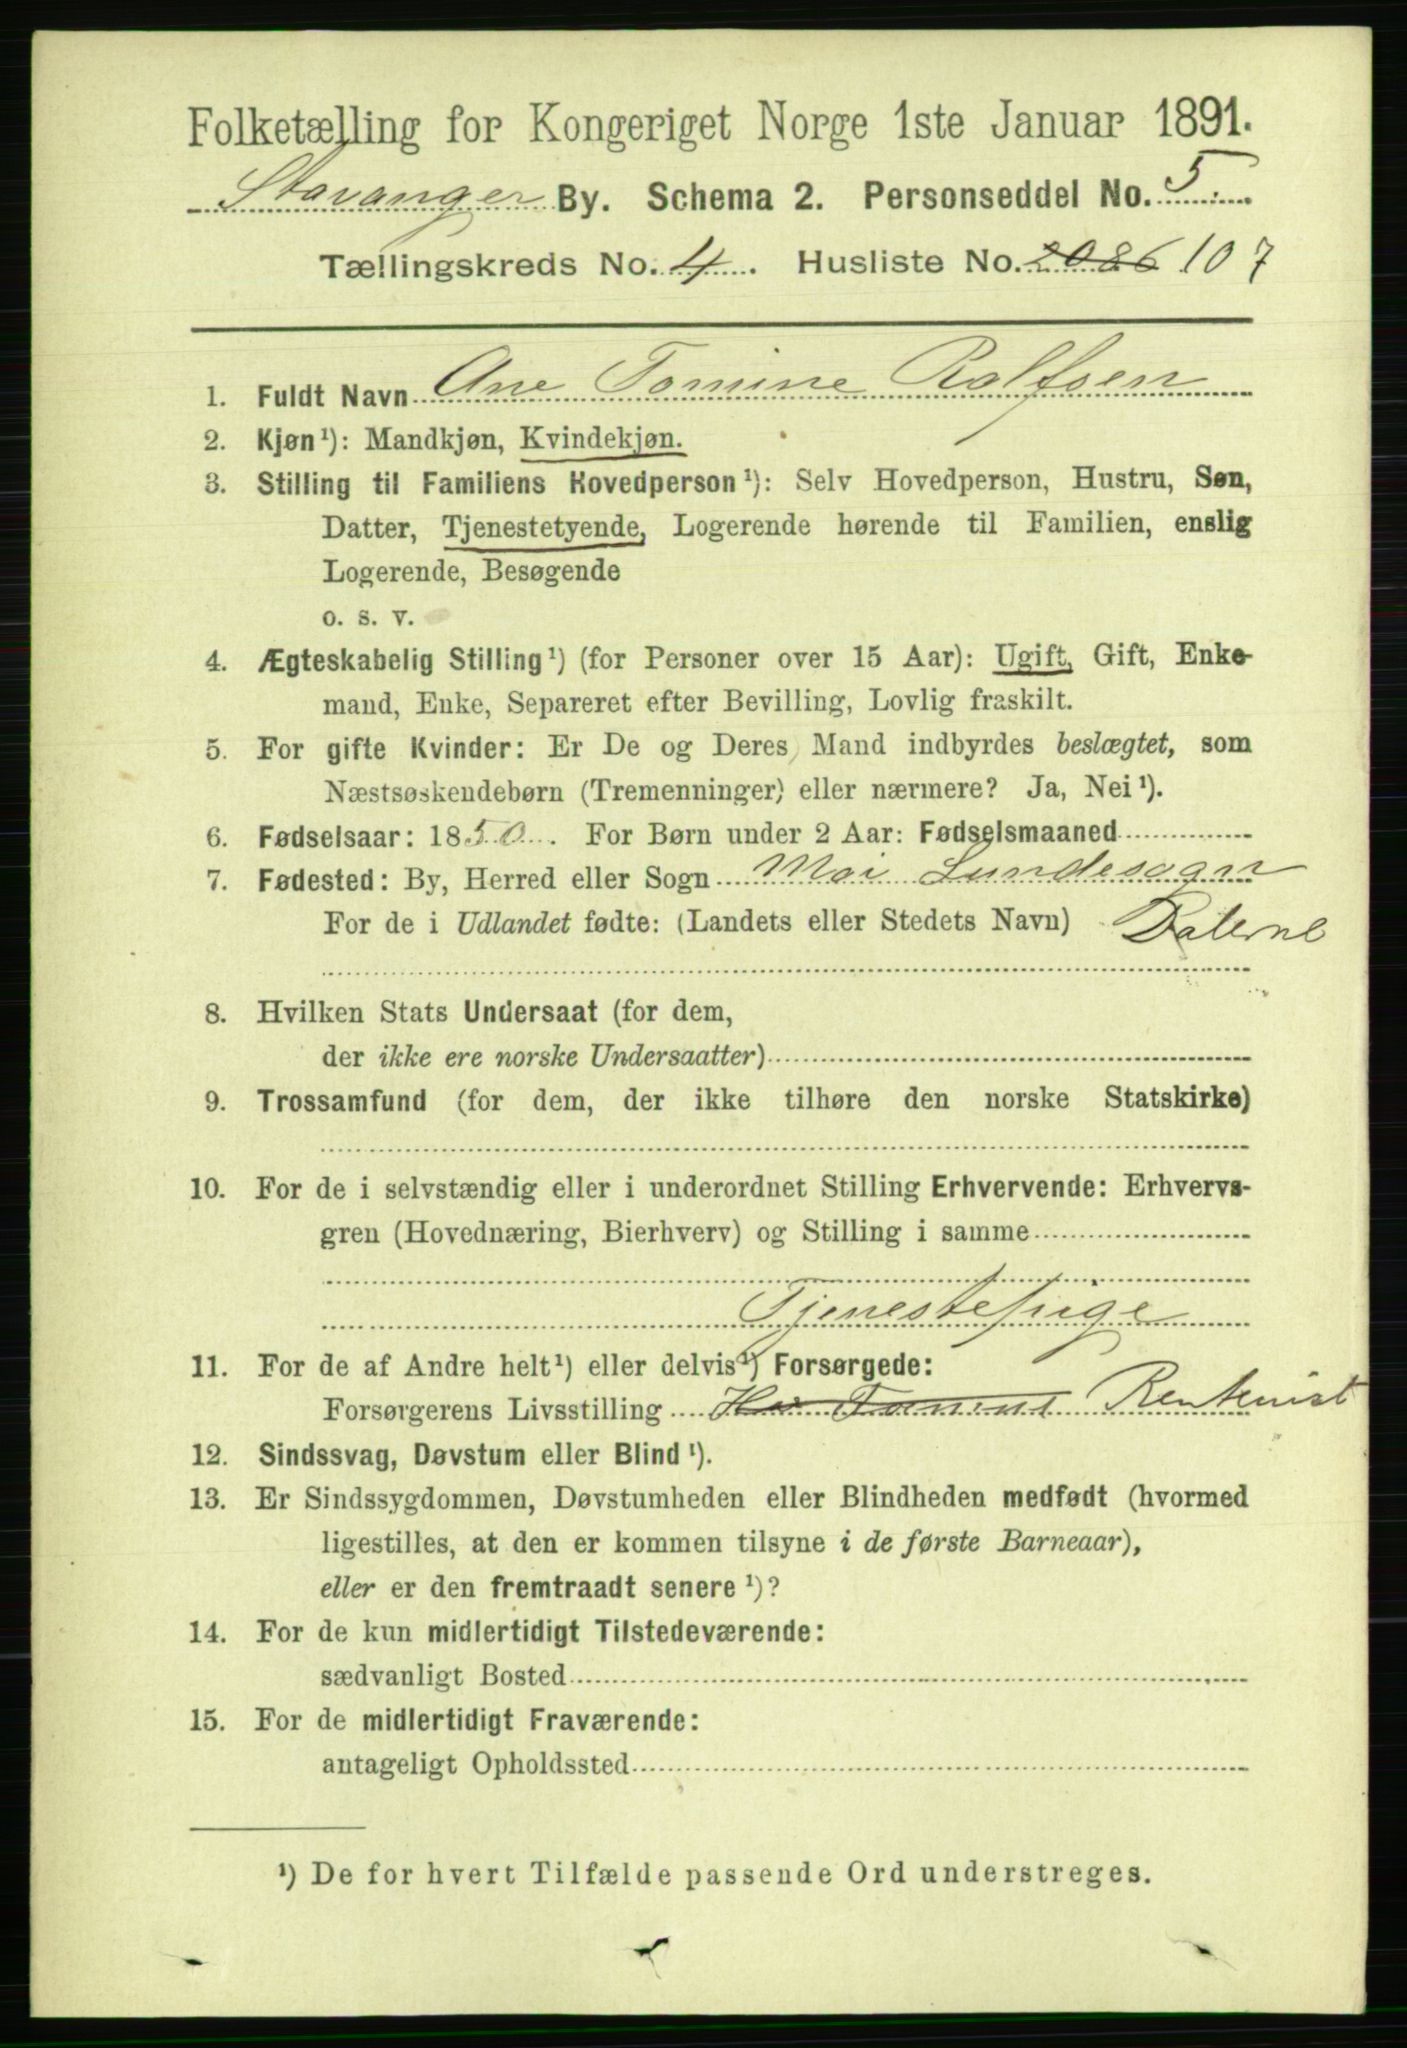 Folketælling for Kongeriget Norge 1ste Januar 1891.
Stavanger By. Schema 2. Personseddel No. 5.
Tællingskreds No. 4. Husliste No. 2086 107
1. Fuldt Navn Ane Tomine Rolfsen
2. Kjøn¹): Mandkjøn, Kvindekjøn.
3. Stilling til Familiens Hovedperson¹): Selv Hovedperson, Hustru, Søn,
Datter, Tjenestetyende, Logerende hørende til Familien, enslig
Logerende, Besøgende
o. s. v.
4. Ægteskabelig Stilling¹) (for Personer over 15 Aar): Ugift, Gift, Enke-
mand, Enke, Separeret efter Bevilling, Lovlig fraskilt.
5. For gifte Kvinder: Er De og Deres Mand indbyrdes beslægtet, som
Næstsøskendebørn (Tremenninger) eller nærmere? Ja, Nei¹).
6. Fødselsaar: 1850. For Børn under 2 Aar: Fødselsmaaned
7. Fødested: By, Herred eller Sogn Moi Lundesogn
For de i Udlandet fødte: (Landets eller Stedets Navn) Dalerne
8. Hvilken Stats Undersaat (for dem,
der ikke ere norske Undersaatter)
9. Trossamfund (for dem, der ikke tilhøre den norske Statskirke)
10. For de i selvstændig eller i underordnet Stilling Erhvervende: Erhvervs-
gren (Hovednæring, Bierhverv) og Stilling i samme
Tjenestepige
11. For de af Andre helt¹) eller delvis¹) Forsørgede:
Forsørgerens Livsstilling Rentenist
12. Sindssvag, Døvstum eller Blind¹).
13. Er Sindssygdommen, Døvstumheden eller Blindheden medfødt (hvormed
ligestilles, at den er kommen tilsyne i de første Barneaar),
eller er den fremtraadt senere¹)?
14. For de kun midlertidigt Tilstedeværende:
sædvanligt Bosted
15. For de midlertidigt Fraværende:
antageligt Opholdssted
¹) De for hvert Tilfælde passende Ord understreges.